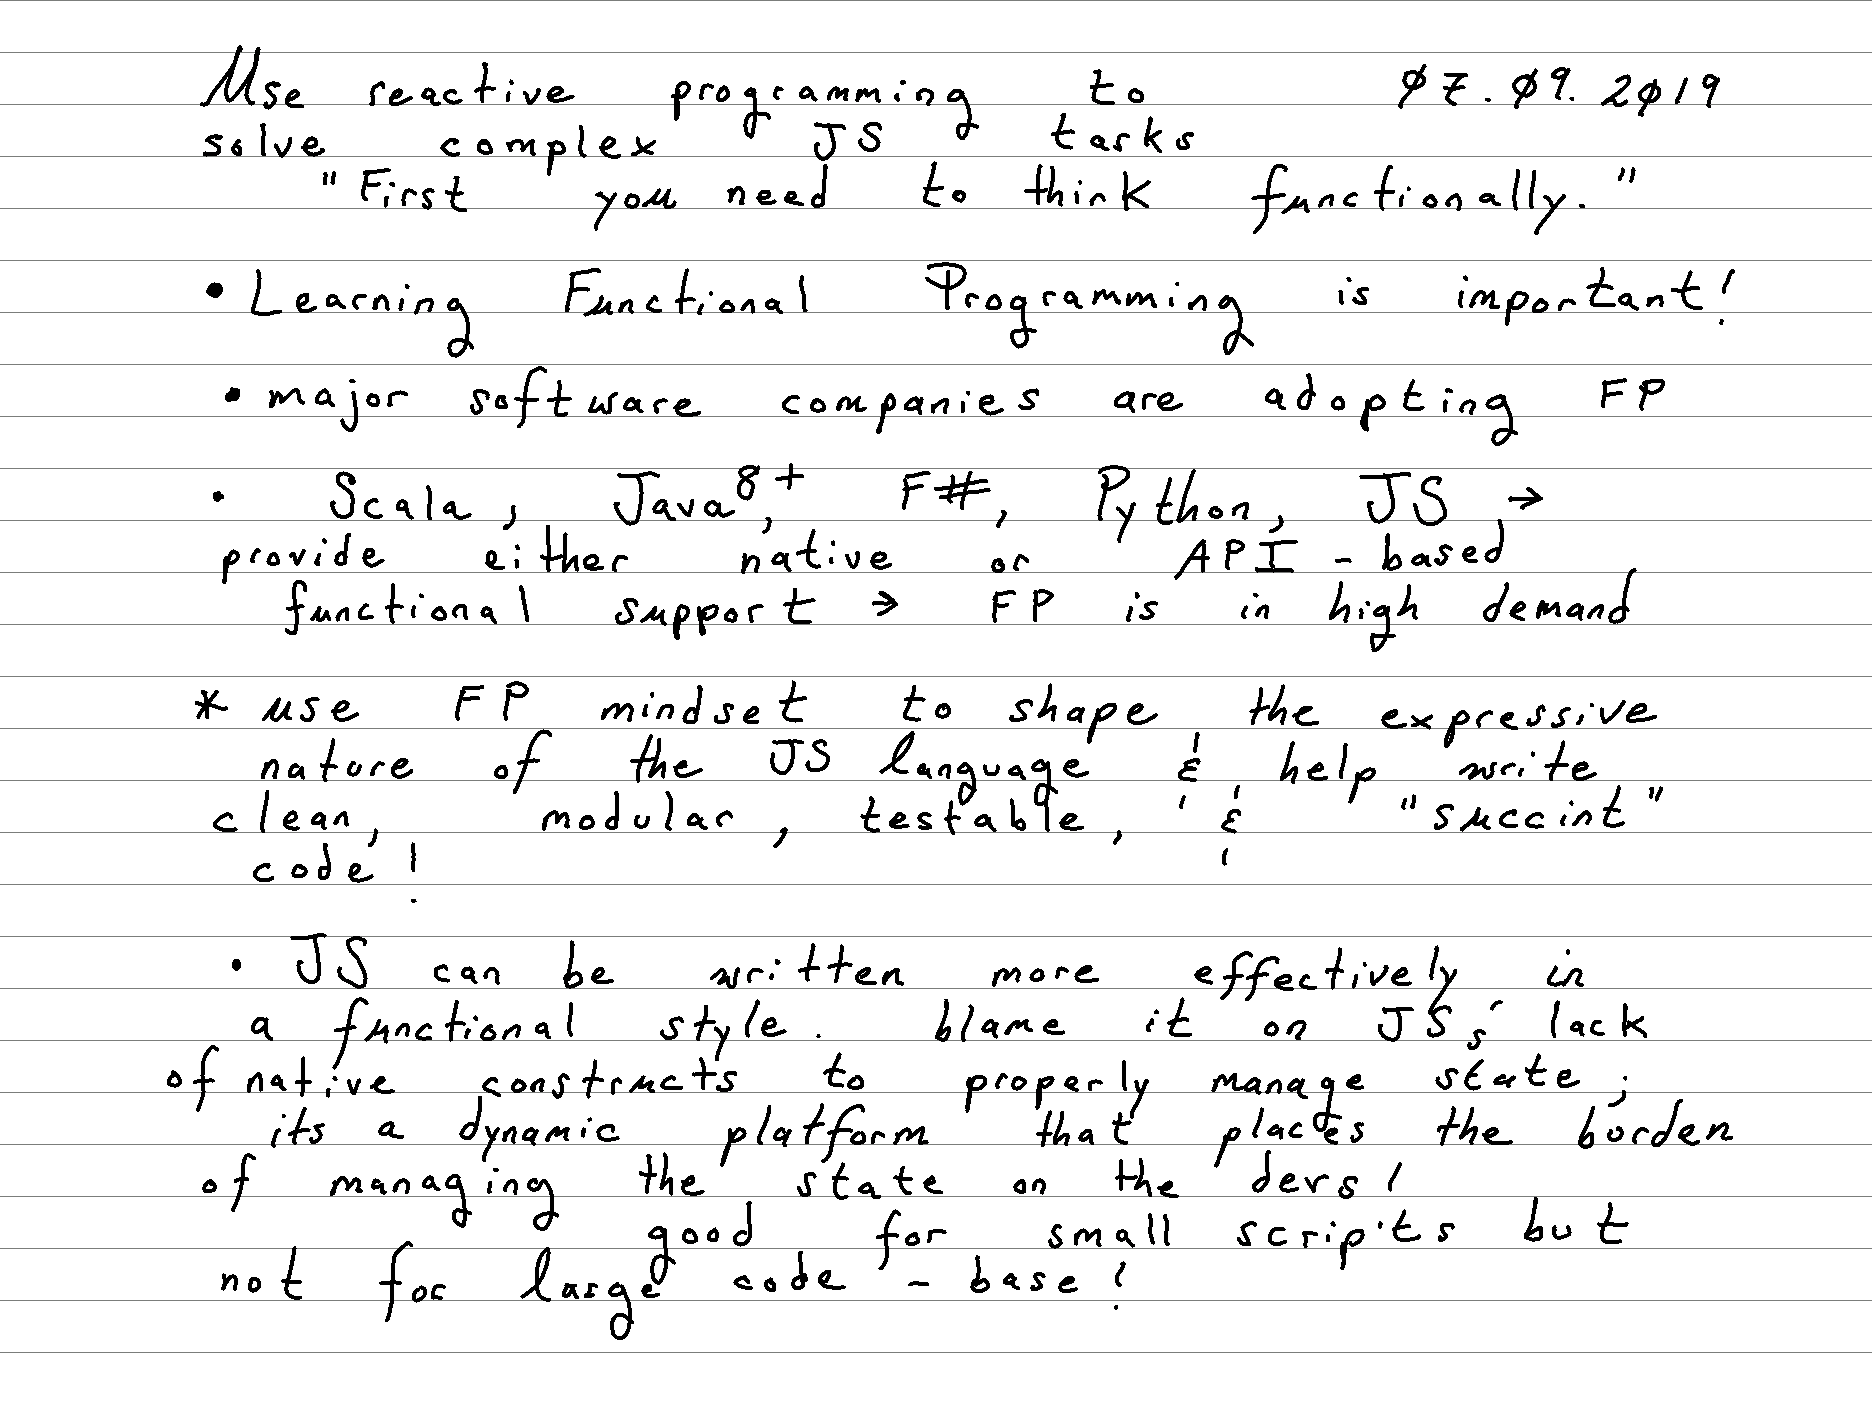 Use reactive programming to 07.09.2019
solve complex JS tasks
"First you need to think functionally."
• Learning Functional Programming is important!
• major software companies are adopting FP
• Scala, Java 8+, F#, Python, JS →
provide either native or API-based
functional support → FP is in high demand
* use FP mindset to shape the expressive
nature of the JS language & help write
clean, modular, testable, & "succint"
code!
• JS can be written more effectively in
a functional style. blame it on JSs' lack
of native constructs to properly manage state;
its a dynamic platform that places the burden
of managing the state on the devs!
good for small scripts but
not for large code-base!